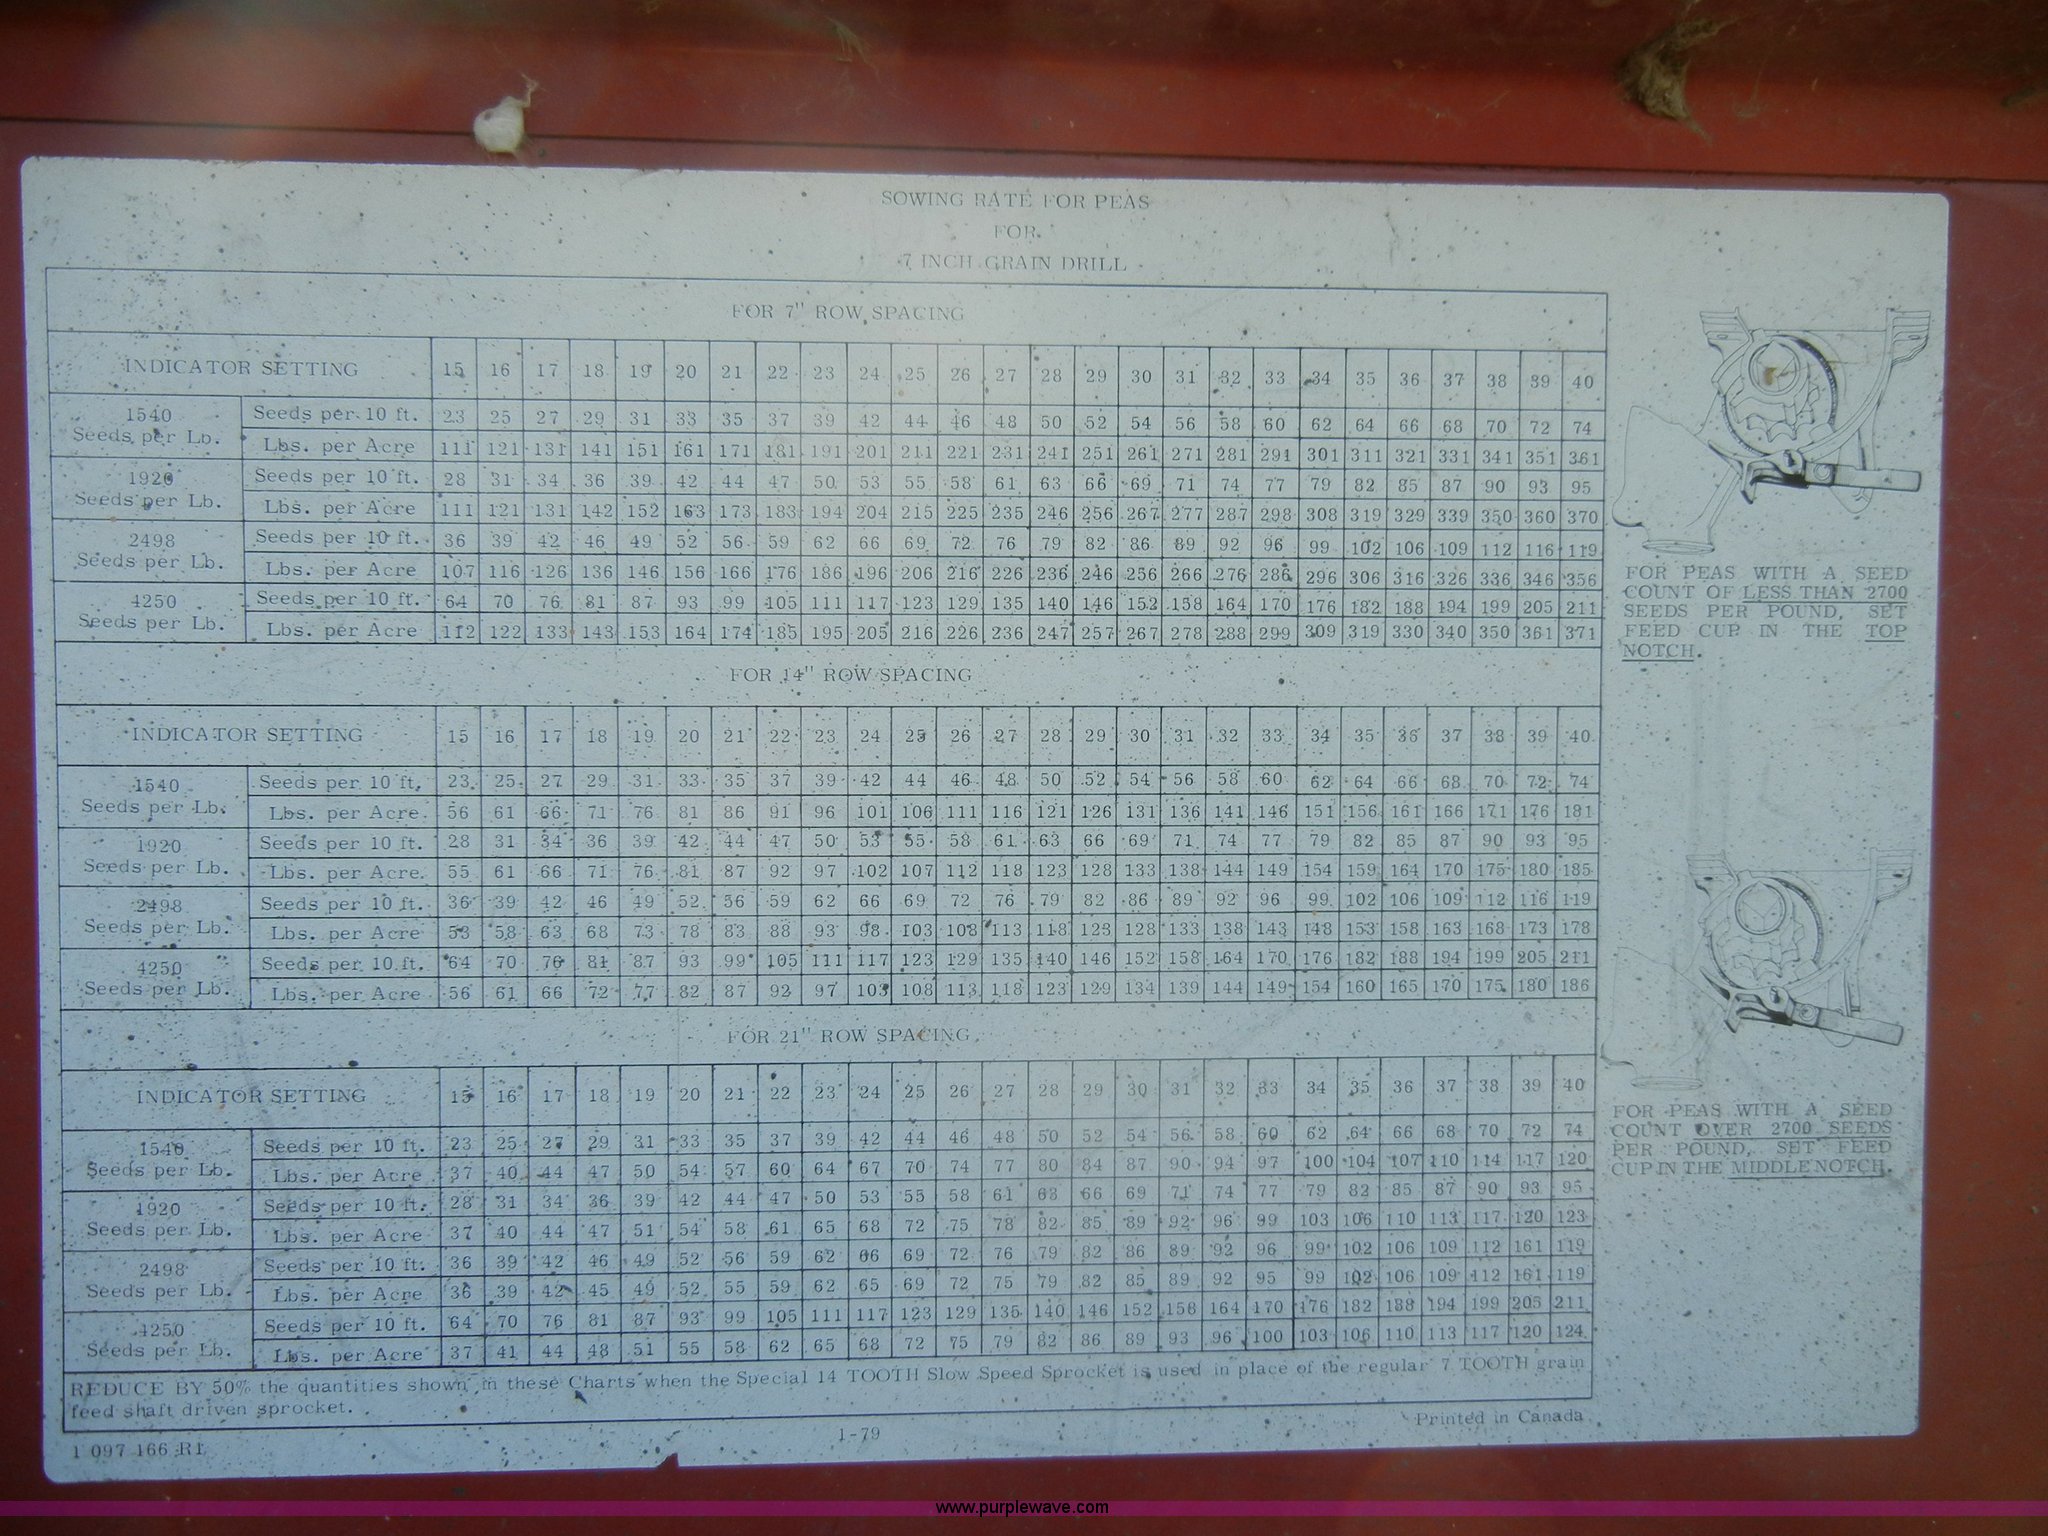 SOWING RATE FOR PEAS
FOR
7 INCH GRAIN DRILL
FOR 7" ROW SPACING
INDICATOR SETTING 15 16 17 18 19 20 21 22 23 24 25 26 27 28 29 30 31 32 33 34 35 36 37 38 39 40
1540 Seeds per Lb. Seeds per 10 ft. 23 25 27 29 31 33 35 37 39 42 44 46 48 50 52 54 56 58 60 62 64 66 68 70 72 74
Lbs. per Acre 111 121 131 141 151 161 171 181 191 201 211 221 231 241 251 261 271 281 291 301 311 321 331 341 351 361
1920 Seeds per Lb. Seeds per 10 ft. 28 31 34 36 39 42 44 47 50 53 55 58 61 63 66 69 71 74 77 79 82 85 87 90 93 95
Lbs. per Acre 111 121 131 142 152 163 173 183 194 204 215 225 235 246 256 267 277 287 298 308 319 329 339 350 360 370
2498 Seeds per Lb. Seeds per 10 ft. 36 39 42 46 49 52 56 59 62 66 69 72 76 79 82 86 89 92 96 99 102 106 109 112 116 119
Lbs. per Acre 107 116 126 136 146 156 166 176 186 196 206 216 226 236 246 256 266 276 286 296 306 316 326 336 346 356
4250 Seeds per Lb. Seeds per 10 ft. 64 70 76 81 87 93 99 105 111 117 123 129 135 140 146 152 158 164 170 176 182 188 194 199 205 211
Lbs. per Acre 112 122 133 143 153 164 174 185 195 205 216 226 236 247 257 267 278 288 299 309 319 330 340 350 361 371
FOR 14" ROW SPACING
INDICATOR SETTING 15 16 17 18 19 20 21 22 23 24 25 26 27 28 29 30 31 32 33 34 35 36 37 38 39 40
1540 Seeds per Lb. Seeds per 10 ft. 23 25 27 29 31 33 35 37 39 42 44 46 48 50 52 54 56 58 60 62 64 66 68 70 72 74
Lbs. per Acre 56 61 66 71 76 81 86 91 96 101 106 111 116 121 126 131 136 141 146 151 156 161 166 171 176 181
1920 Seeds per Lb. Seeds per 10 ft. 28 31 34 36 39 42 44 47 50 53 55 58 61 63 66 69 71 74 77 79 82 85 87 90 93 95
Lbs. per Acre 55 61 66 71 76 81 87 92 97 102 107 112 118 123 128 133 138 144 149 154 159 164 170 175 180 185
2498 Seeds per Lb. Seeds per 10 ft. 36 39 42 46 49 52 56 59 62 66 69 72 76 79 82 86 89 92 96 99 102 106 109 112 116 119
Lbs. per Acre 53 58 63 68 73 78 83 88 93 98 103 108 113 118 123 128 133 138 143 148 153 158 163 168 173 178
4250 Seeds per Lb. Seeds per 10 ft. 64 70 76 81 87 93 99 105 111 117 123 129 135 140 146 152 158 164 170 176 182 188 194 199 205 211
Lbs. per Acre 56 61 66 72 77 82 87 92 97 103 108 113 118 123 129 134 139 144 149 154 160 165 170 175 180 186
FOR 21" ROW SPACING
INDICATOR SETTING 15 16 17 18 19 20 21 22 23 24 25 26 27 28 29 30 31 32 33 34 35 36 37 38 39 40
1540 Seeds per Lb. Seeds per 10 ft. 23 25 27 29 31 33 35 37 39 42 44 46 48 50 52 54 56 58 60 62 64 66 68 70 72 74
Lbs. per Acre 37 40 44 47 50 54 57 60 64 67 70 74 77 80 84 87 90 94 97 100 104 107 110 114 117 120
1920 Seeds per Lb. Seeds per 10 ft. 28 31 34 36 39 42 44 47 50 53 55 58 61 63 66 69 71 74 77 79 82 85 87 90 93 95
Lbs. per Acre 37 40 44 47 51 54 58 61 65 68 72 75 78 82 85 89 92 96 99 103 106 110 113 117 120 123
2498 Seeds per Lb. Seeds per 10 ft. 36 39 42 46 49 52 56 59 62 66 69 72 76 79 82 86 89 92 96 99 102 106 109 112 161 119
Lbs. per Acre 36 39 42 45 49 52 55 59 62 65 69 72 75 79 82 85 89 92 95 99 102 106 109 112 161 119
4250 Seeds per Lb. Seeds per 10 ft. 64 70 76 81 87 93 99 105 111 117 123 129 135 140 146 152 158 164 170 176 182 188 194 199 205 211
Lbs. per Acre 37 41 44 48 51 55 58 62 65 68 72 75 79 82 86 89 93 96 100 103 106 110 113 117 120 124
REDUCE BY 50% the quantities shown in these Charts when the Special 14 TOOTH Slow Speed Sprocket is used in place of the regular 7 TOOTH grain
feed shaft driven sprocket.
1 097 166 R1
1-79
Printed in Canada
FOR PEAS WITH A SEED
COUNT OF LESS THAN 2700
SEEDS PER POUND, SET
FEED CUP IN THE TOP
NOTCH.
FOR PEAS WITH A SEED
COUNT OVER 2700 SEEDS
PER POUND, SET FEED
CUP IN THE MIDDLE NOTCH.
www.purplewave.com